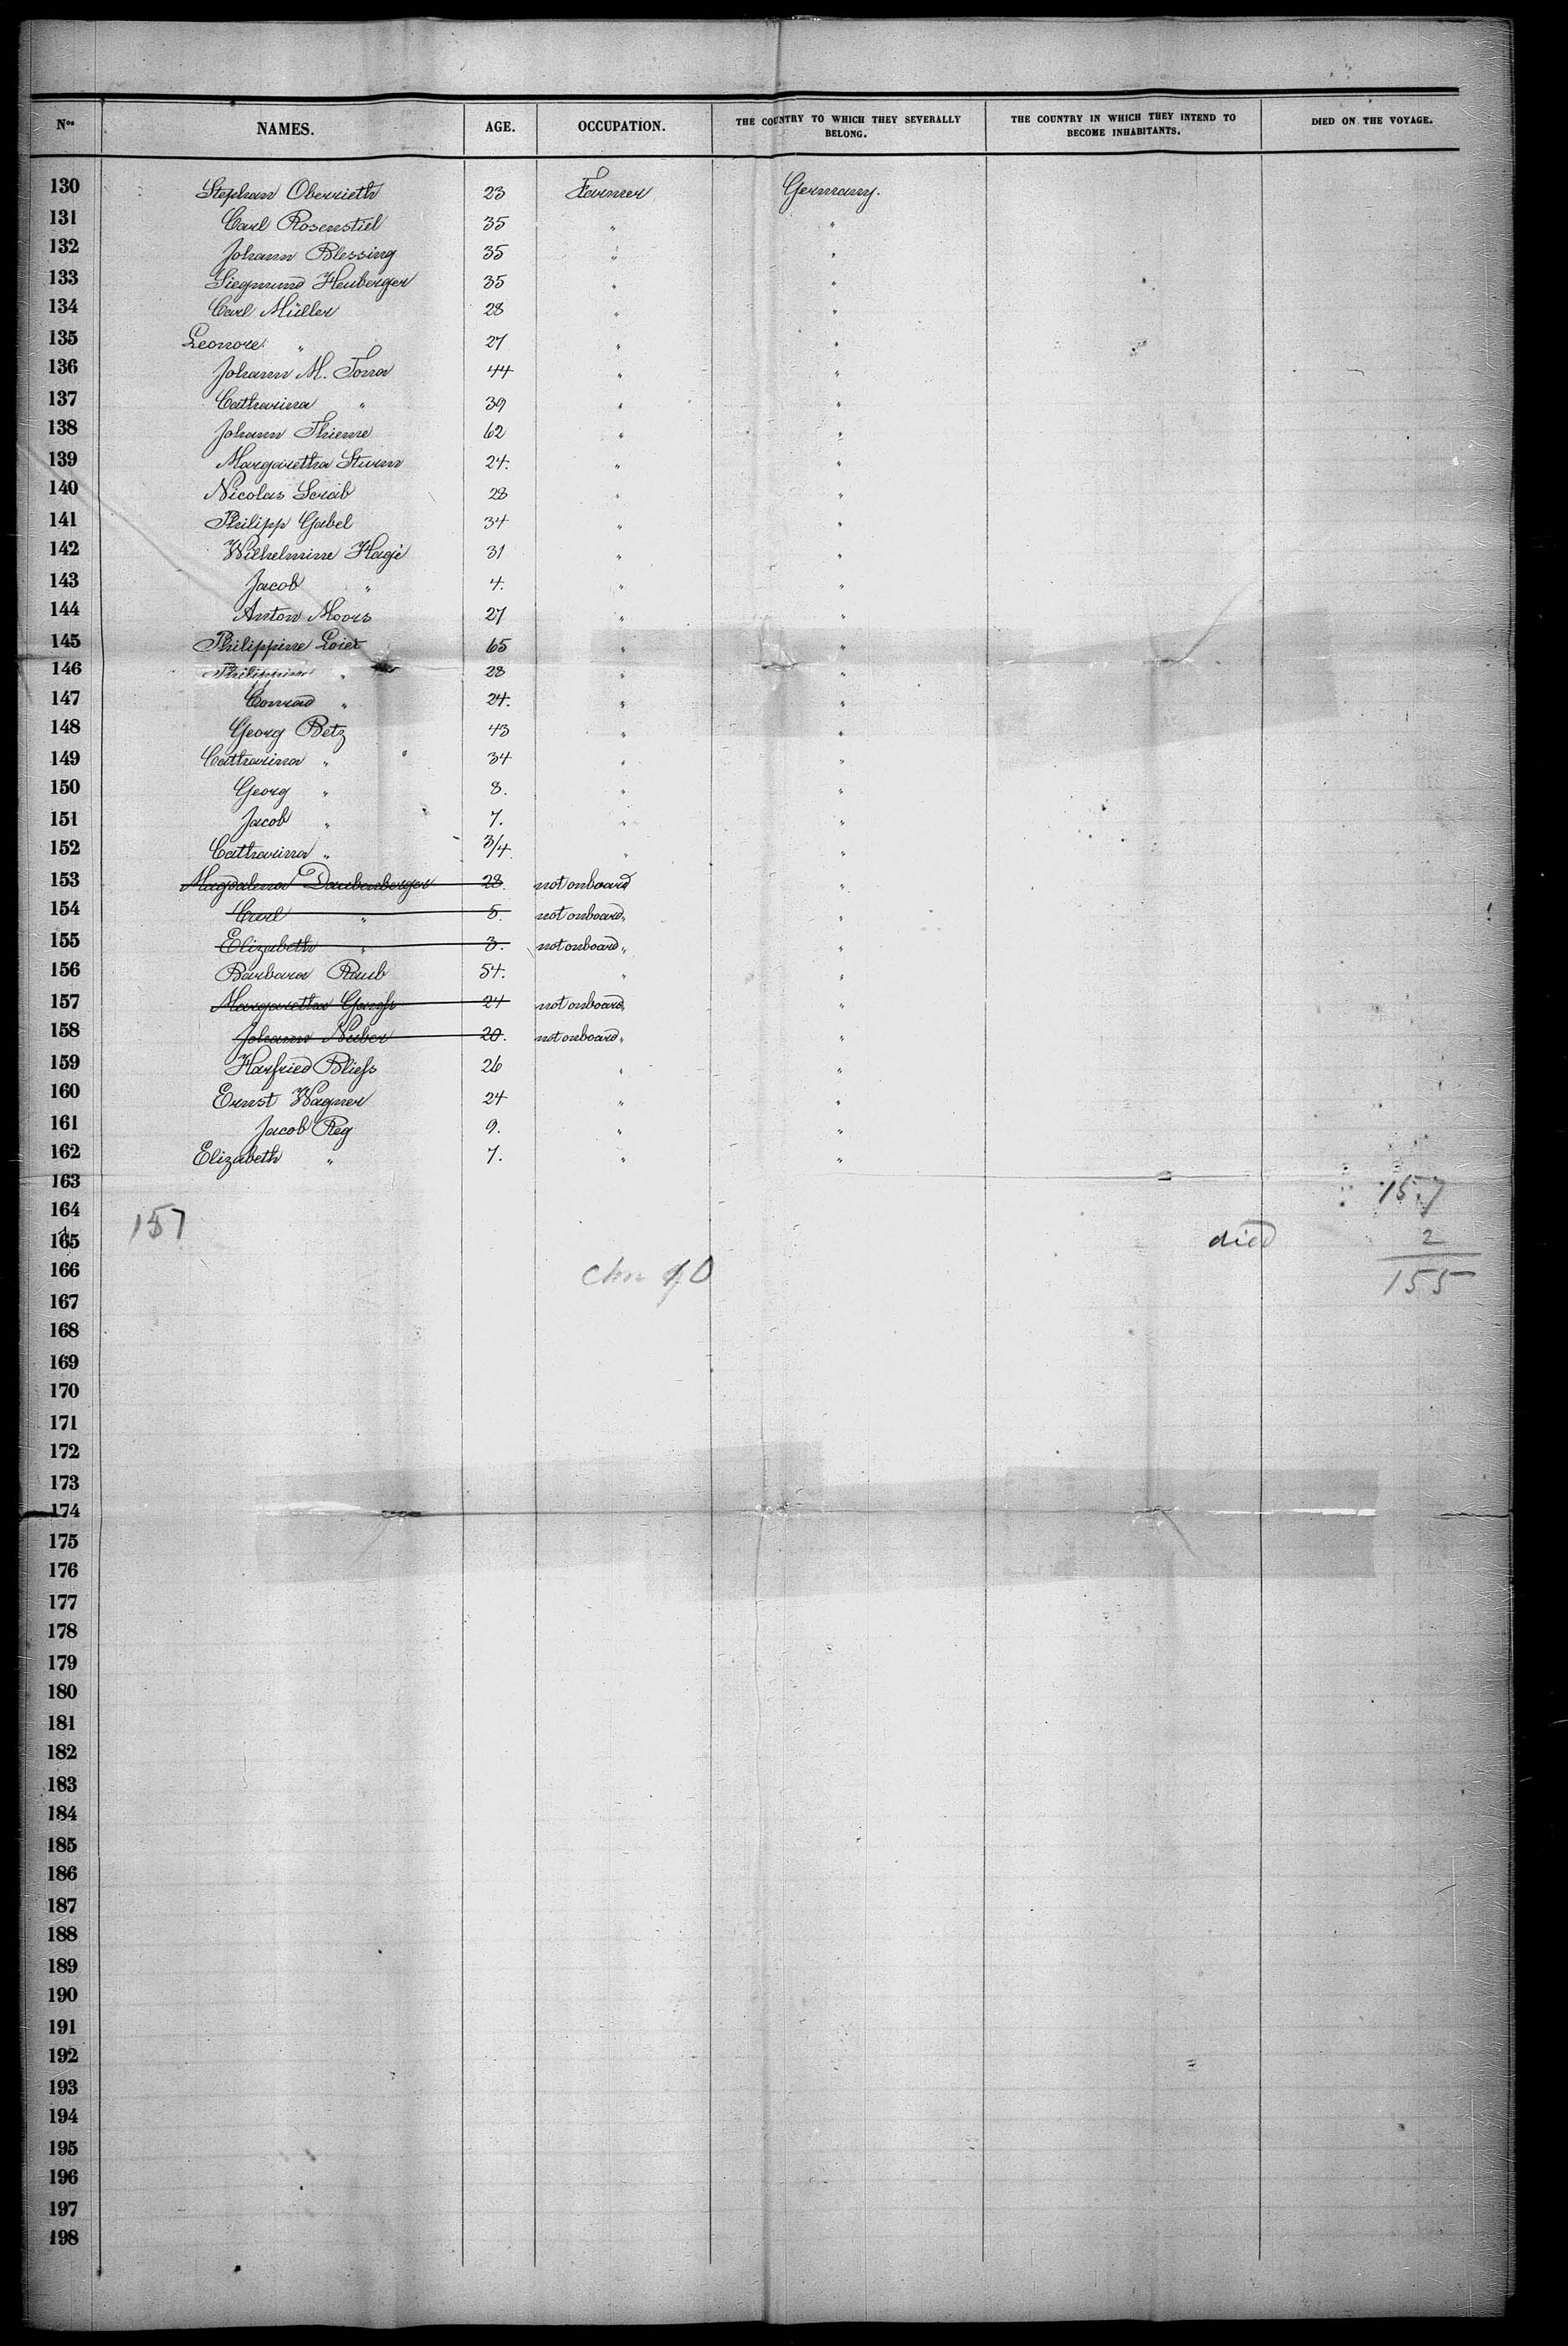 Nos NAMES. AGE. OCCUPATION. THE COUNTRY TO WHICH THEY SEVERALLY BELONG. THE COUNTRY IN WHICH THEY INTEND TO BECOME INHABITANTS. DIED ON THE VOYAGE.
130 Stephan Oberrieth 23 Farmer Germany.
131 Carl Rosenstiel 35 " "
132 Johann Blessing 35 " "
133 Siegmund Heuberger 35 " "
134 Carl Müller 28 " "
135 Leonore " 27 " "
136 Johann M. 44 " "
137 Catharina " 39 " "
138 Johann Thieme 62 " "
139 Margaretha Sturm 24. " "
140 Nicolas 28 " "
141 Philipp Gabel 34 " "
142 Wilhelmine Hage 31 " "
143 Jacob " 4. " "
144 Anton Moors 27 " "
145 Philippine 65 " "
146 " 28 " "
147 Conrad " 24. " "
148 Georg Betz 43 " "
149 Catharina " 34 " "
150 Georg " 8. " "
151 Jacob " 7. " "
152 Catharina " 3/4. " "
153 Magdalena Daubenberger 28. not onboard "
154 Carl " 5. not onboard " "
155 Elizabeth " 3. not onboard " "
156 Barbara Raub 54. " "
157 Margaretha 24 not onboard " "
158 Johann 20. not onboard " "
159 Harfried Bliefs 26 " "
160 Ernst Wagner 24 " "
161 Jacob Reg 9. " "
162 Elizabeth " 7. " "
163 157
164 157
165 died 2
166 155
167
168
169
170
171
172
173
174
175
176
177
178
179
180
181
182
183
184
185
186
187
188
189
190
191
192
193
194
195
196
197
198